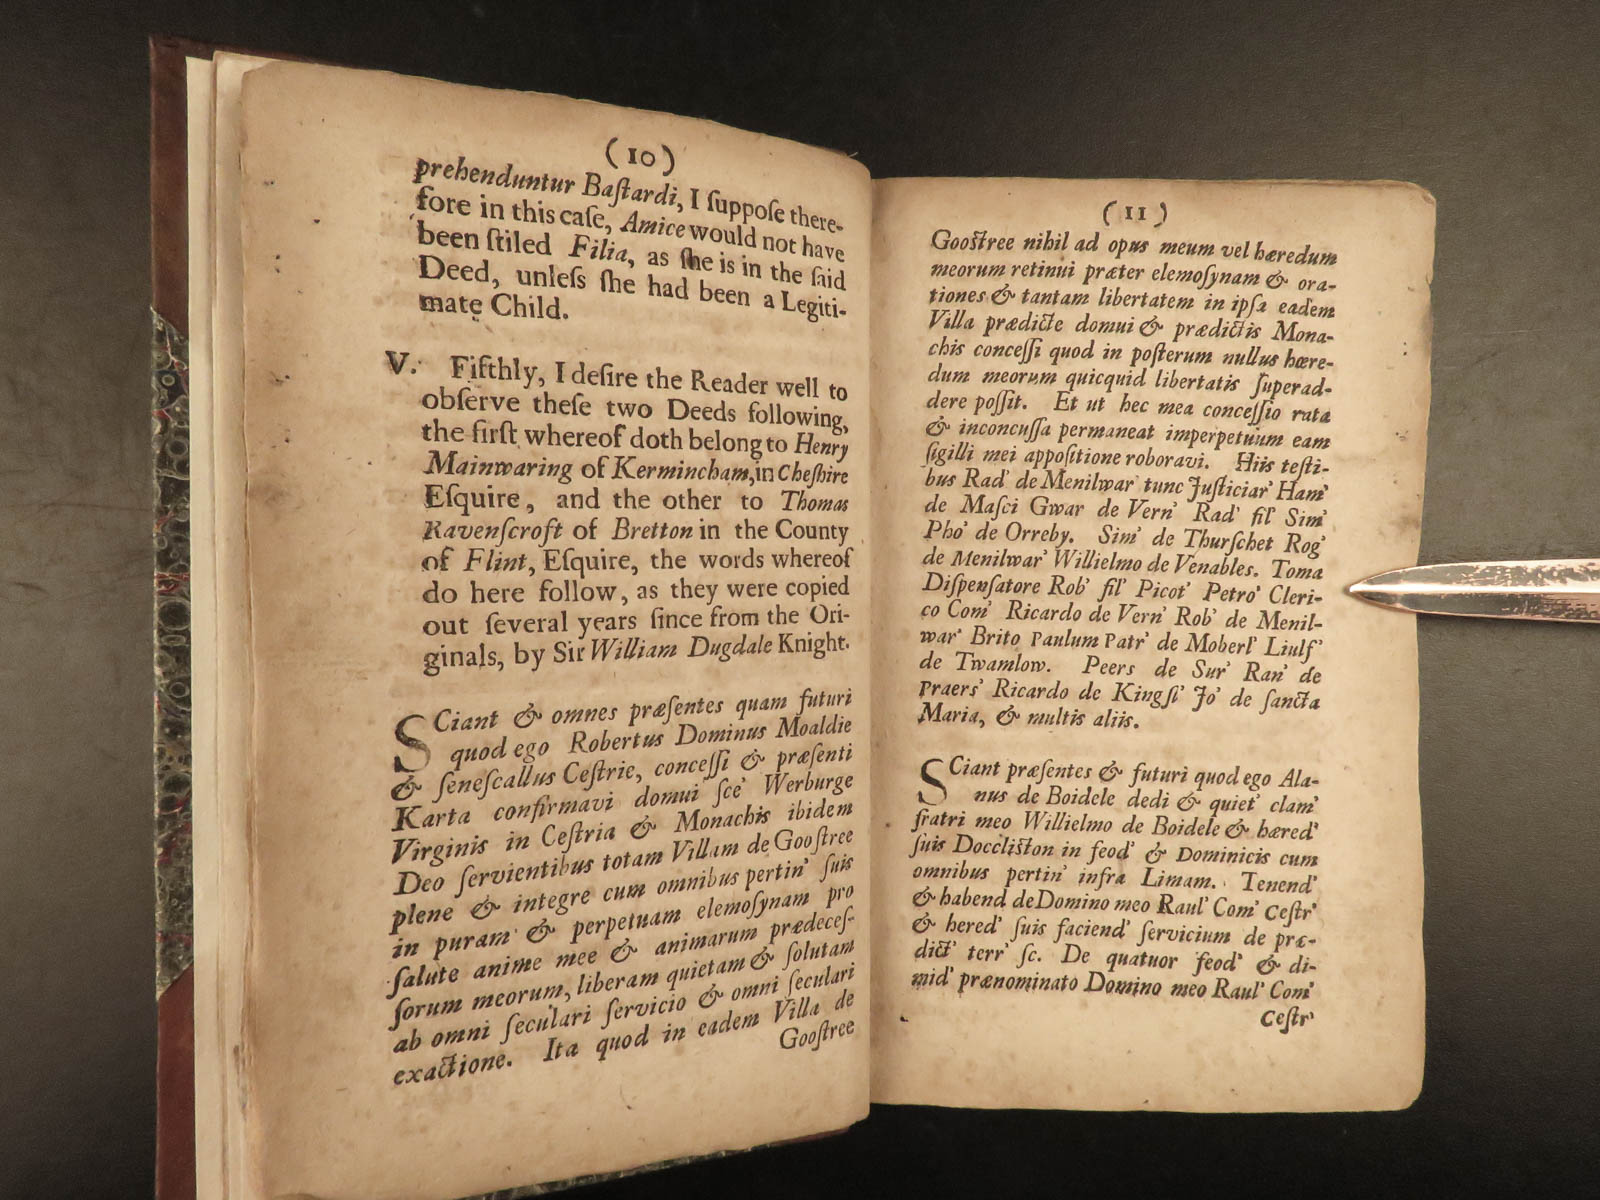 (10)
prehenduntur Baſtardi, I ſuppoſe there-
fore in this caſe, Amice would not have
been ſtiled Filia, as ſhe is in the ſaid
Deed, unleſs ſhe had been a Legiti-
mate Child.
V. Fifthly, I deſire the Reader well to
obſerve theſe two Deeds following,
the firſt whereof doth belong to Henry
Mainwaring of Kermincham, in Cheſhire
Eſquire, and the other to Thomas
Ravenſcroft of Bretton in the County
of Flint, Eſquire, the words whereof
do here follow, as they were copied
out ſeveral years ſince from the Ori-
ginals, by Sir William Dugdale Knight.
SCiant & omnes præſentes quam futuri
quod ego Robertus Dominus Moaldie
& ſeneſcallus Ceſtrie, conceſſi & præſenti
Karta confirmavi domui ſce' Werburge
Virginis in Ceſtria & Monachis ibidem
Deo ſervientibus totam Villam de Gooſtree
plene & integre cum omnibus pertin' ſuis
in puram & perpetuam elemoſynam pro
ſalute anime mee & animarum prædeceſ-
ſorum meorum, liberam quietam & ſolutam
ab omni ſeculari ſervicio & omni ſeculari
exactione. Ita quod in eadem Villa de
Gooſtree
(11)
Gooſtree nihil ad opus meum vel hæredum
meorum retinui præter elemoſynam & ora-
tiones & tantam libertatem in ipſa eadem
Villa prædicte domui & prædictis Mona-
chis conceſſi quod in poſterum nullus hære-
dum meorum quicquid libertatis ſuperad-
dere poſſit. Et ut hec mea conceſſio rata
& inconcuſſa permaneat imperpetuum eam
ſigilli mei appoſitione roboravi. Hiis teſti-
bus Rad' de Menilwar' tunc Juſticiar' Ham'
de Maſci Gwar' de Vern' Rad' fil' Sim'
Pho' de Orreby. Sim' de Thurſchet Rog'
de Menilwar' Willielmo de Venables. Toma
Diſpenſatore Rob' fil' Picot' Petro' Cleri-
co Com' Ricardo de Vern' Rob' de Menil-
war' Brito Paulum Patr' de Moberl' Liulf'
de Twamlow. Peers de Sur' Ran' de
Praers' Ricardo de Kingſl' Jo' de ſancta
Maria, & multis aliis.
SCiant præſentes & futuri quod ego Ala-
nus de Boidele dedi & quiet' clam'
fratri meo Willielmo de Boidele & hæred'
ſuis Doccliſton in feod' & Dominicis cum
omnibus pertin' infra Limam. Tenend'
& habend de Domino meo Raul' Com' Ceſtr'
& hered' ſuis faciend' ſervicium de præ-
dict' terr' ſc. De quatuor feod' & di-
mid' prænominato Domino meo Raul' Com'
Ceſtr'